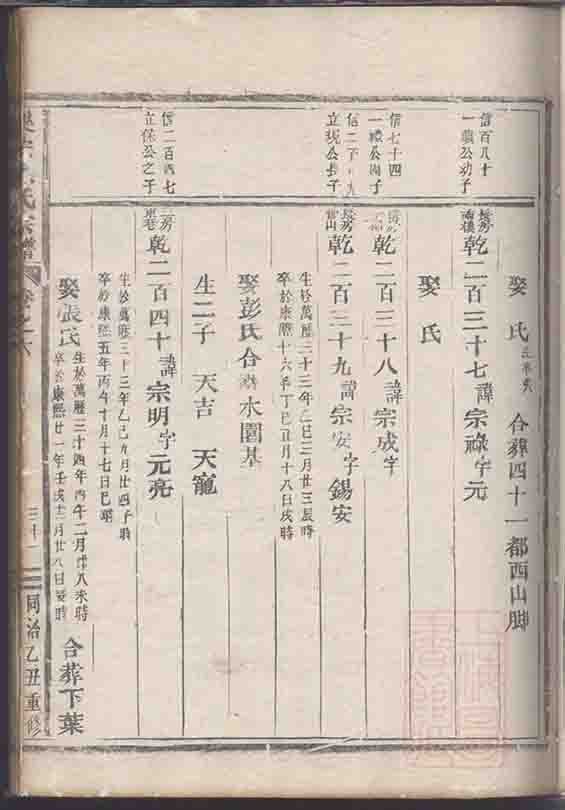 娶 氏 生卒失 合葬四十一都西山脚
信百八十
一 公幼子
乾二百三十七諱宗祿字元
娶 氏
信七十四
一 公 子
乾二百三十八諱宗成字
信二
立 公長子
乾二百三十九諱宗安字錫安
生於萬曆三十三年乙巳三月廿三辰時
卒於康熙十六年丁巳正月十八日戌時
娶彭氏合 水圍基
生二子 天吉 天寵
信二百四七
立保公之子
乾二百四十諱宗明字元亮
生於萬曆三十三年乙巳九月廿四子時
卒於康熙五年丙午十月十七日巳時
娶張氏 生於萬曆三十四年丙午二月 八未時
卒於康熙廿一年壬戌十二月廿八日 時
合葬下葉
氏宗譜
同治乙丑重修